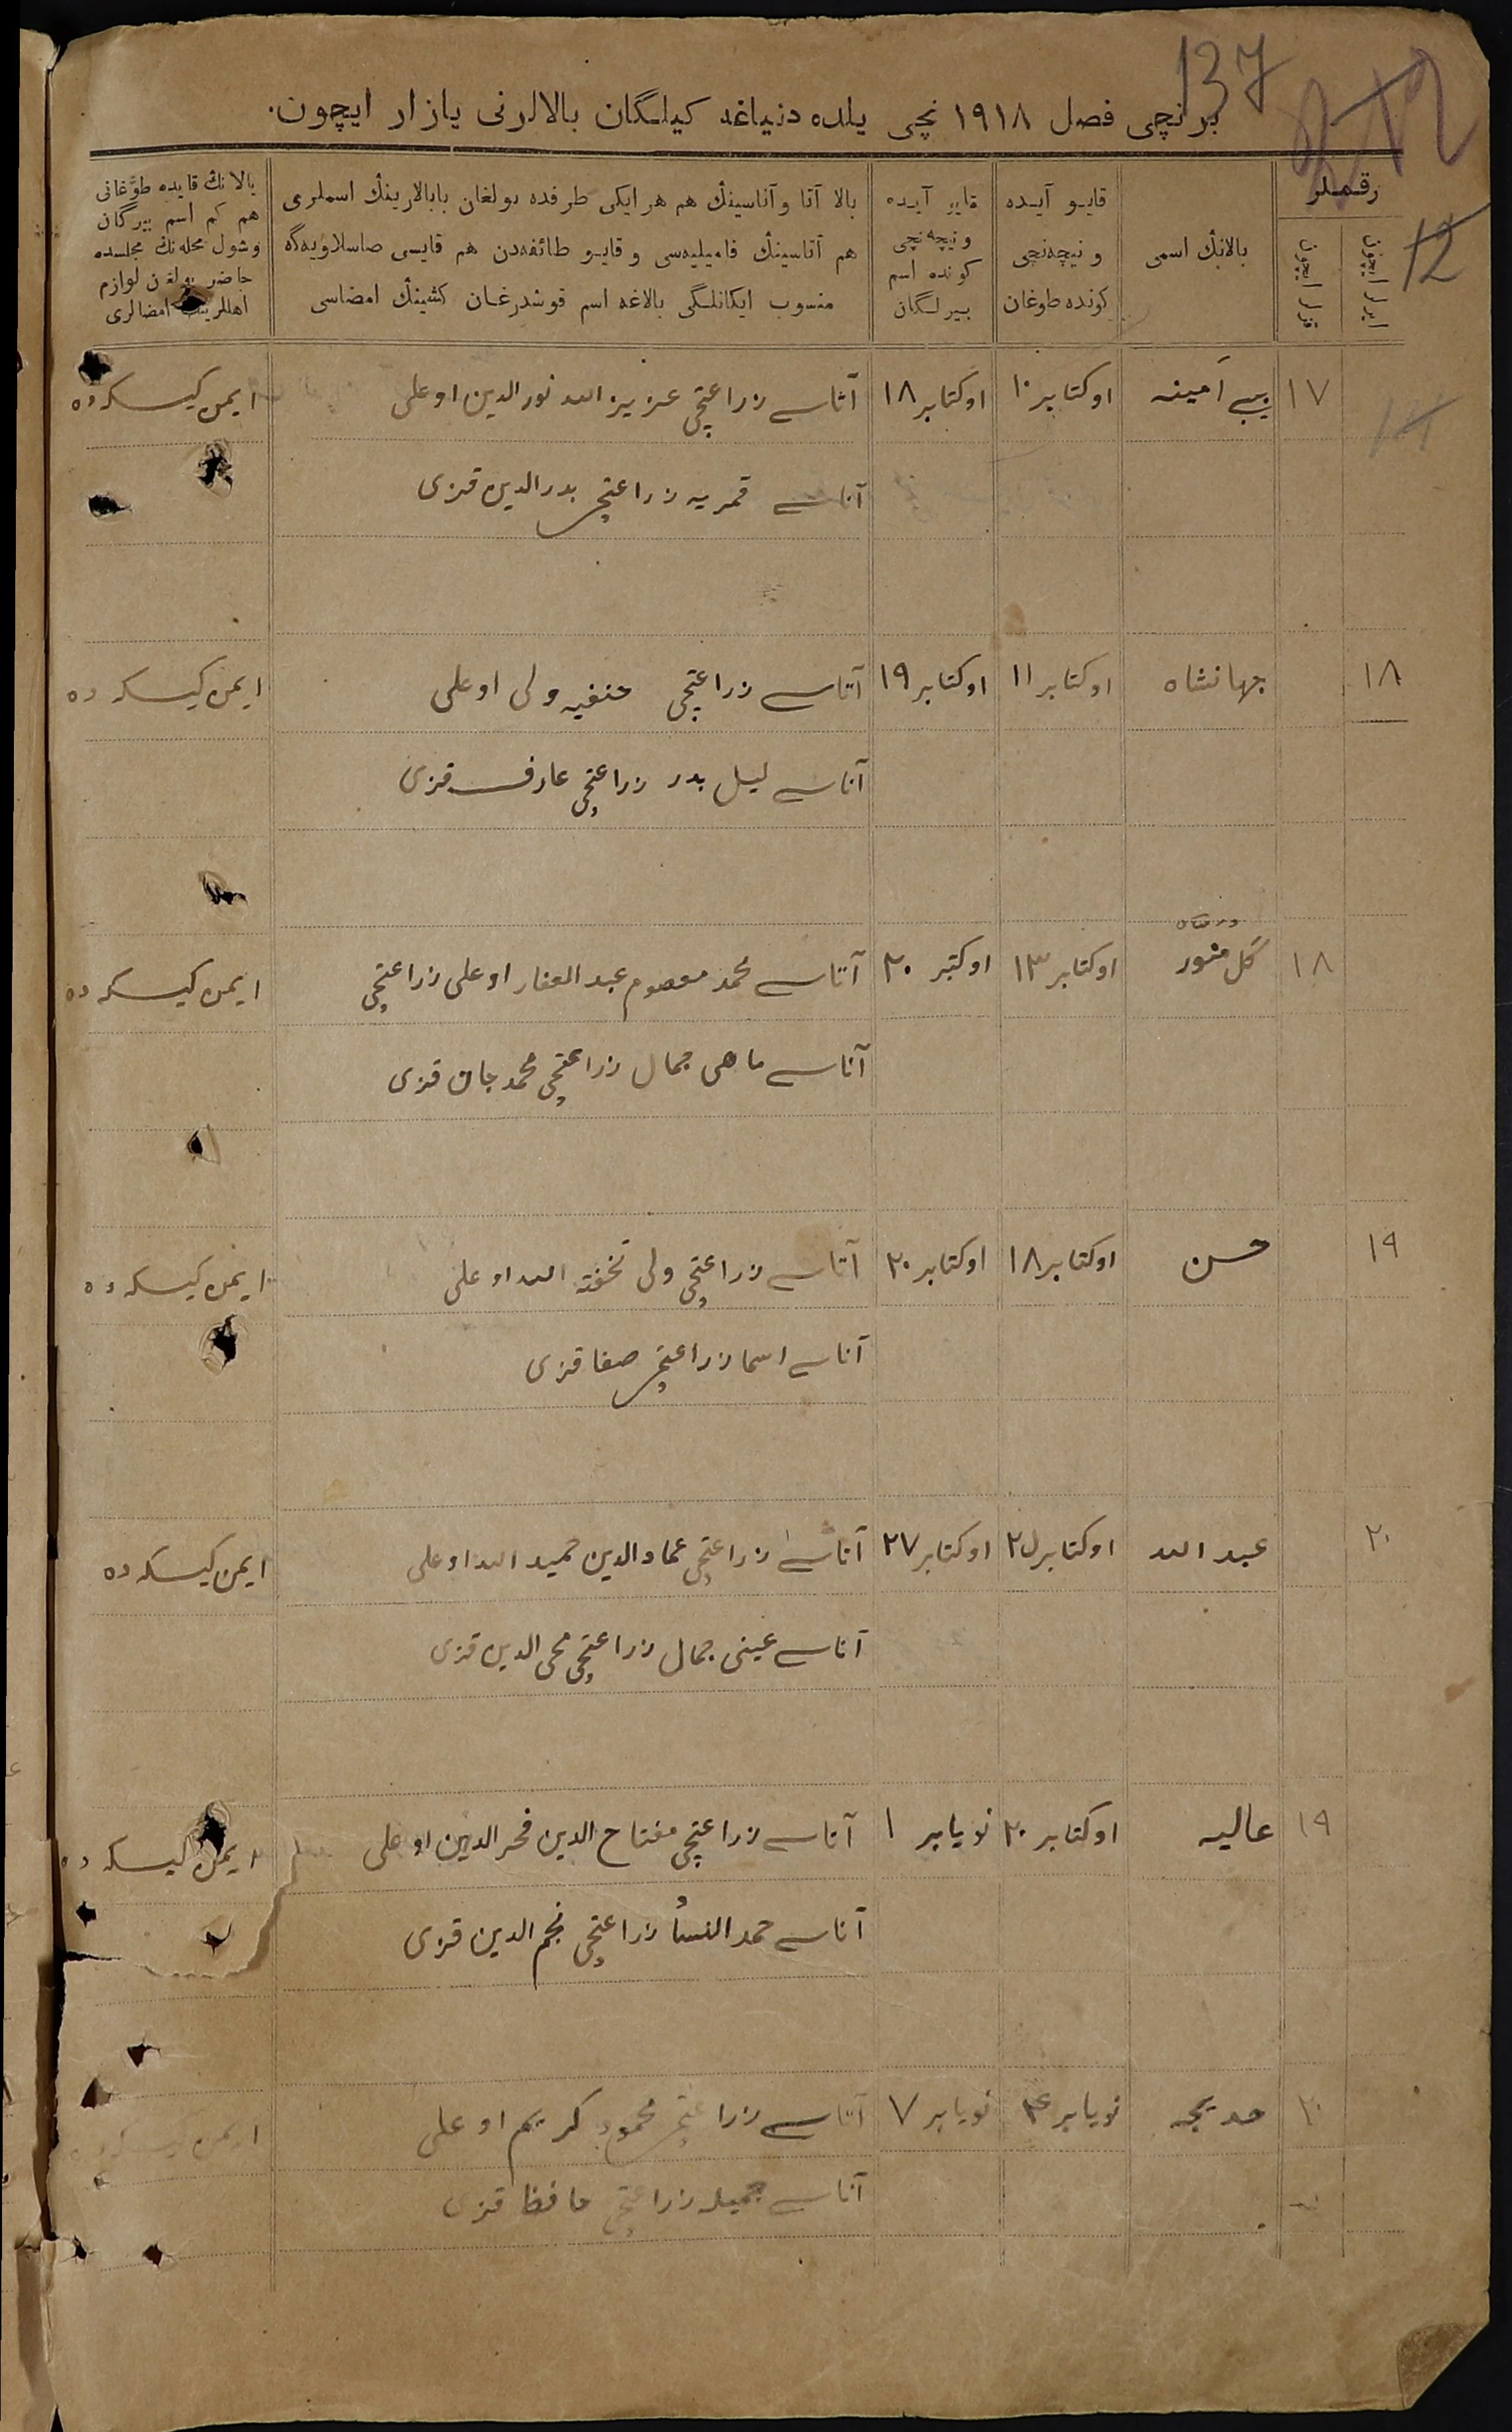 137
برنچی فصل ۱۹۱۸ نچی یلده دنیاغه کیلگان بالالرنی یازار ایچون.
12
رقملر
ایرلر ایچون
قزلر ایچون
بالانڭ اسمی
قایو آیده
و نیچه‌نچی
کونده طوغان
قایو آیده
و نیچه‌نچی
کونده اسم
بیرلگان
بالا آتا و آناسینڭ هم هر ایکی طرفده بولغان بابالارینڭ اسملری
هم آتاسینڭ فامیلیه‌سی و قایو طائفه‌دن هم قایسی صاسلاویه‌گه
منسوب ایکانلگی بالاغه اسم قوشدرغان کشینڭ امضاسی
بالانڭ قایده طوغانی
هم کم اسم بیرگان
وشول محله‌نڭ مجلسده
حاضر بولغان لوازم
اهللرینڭ امضالری
۱۷ بیبی آمینه اوکتابر ۱۰ اوکتابر ۱۸ آتاسی زراعتچی عزیز الله نورالدین اوغلی ایمن کیسکه ده
آناسی قمریه زراعتچی بدرالدین قزی
۱۸ جهانشاه اوکتابر ۱۱ اوکتابر ۱۹ آتاسی زراعتچی حنفیه ولی اوغلی ایمن کیسکه ده
آناسی لیل بدر زراعتچی عارف قزی
۱۸ گل منور اوکتابر ۱۳ اوکتبر ۲۰ آتاسی محمد معصوم عبد الغفار اوغلی زراعتچی ایمن کیسکه ده
آناسی ماهی جمال زراعتچی محمد جان قزی
۱۹ حسن اوکتابر ۱۸ اوکتابر ۲۰ آتاسی زراعتچی ولی تحفة الله اوغلی ایمن کیسکه ده
آناسی اسما زراعتچی صفا قزی
۲۰ عبد الله اوکتابر اوکتابر ۲۷ آتاسی زراعتچی عماد الدین حمید الله اوغلی ایمن کیسکه ده
آناسی عینی جمال زراعتچی محی الدین قزی
۱۹ عالیه اوکتابر ۲۰ نویابر ۱ آتاسی زراعتچی مفتاح الدین فخر الدین اوغلی ایمن کیسکه ده
آناسی حمد النساُ زراعتچی نجم الدین قزی
۲۰ خدیجه نویابر نویابر ۷ آتاسی زراعتچی محمود کریم اوغلی ایمن کیسکه ده
آناسی جمیله زراعتچی حافظ قزی